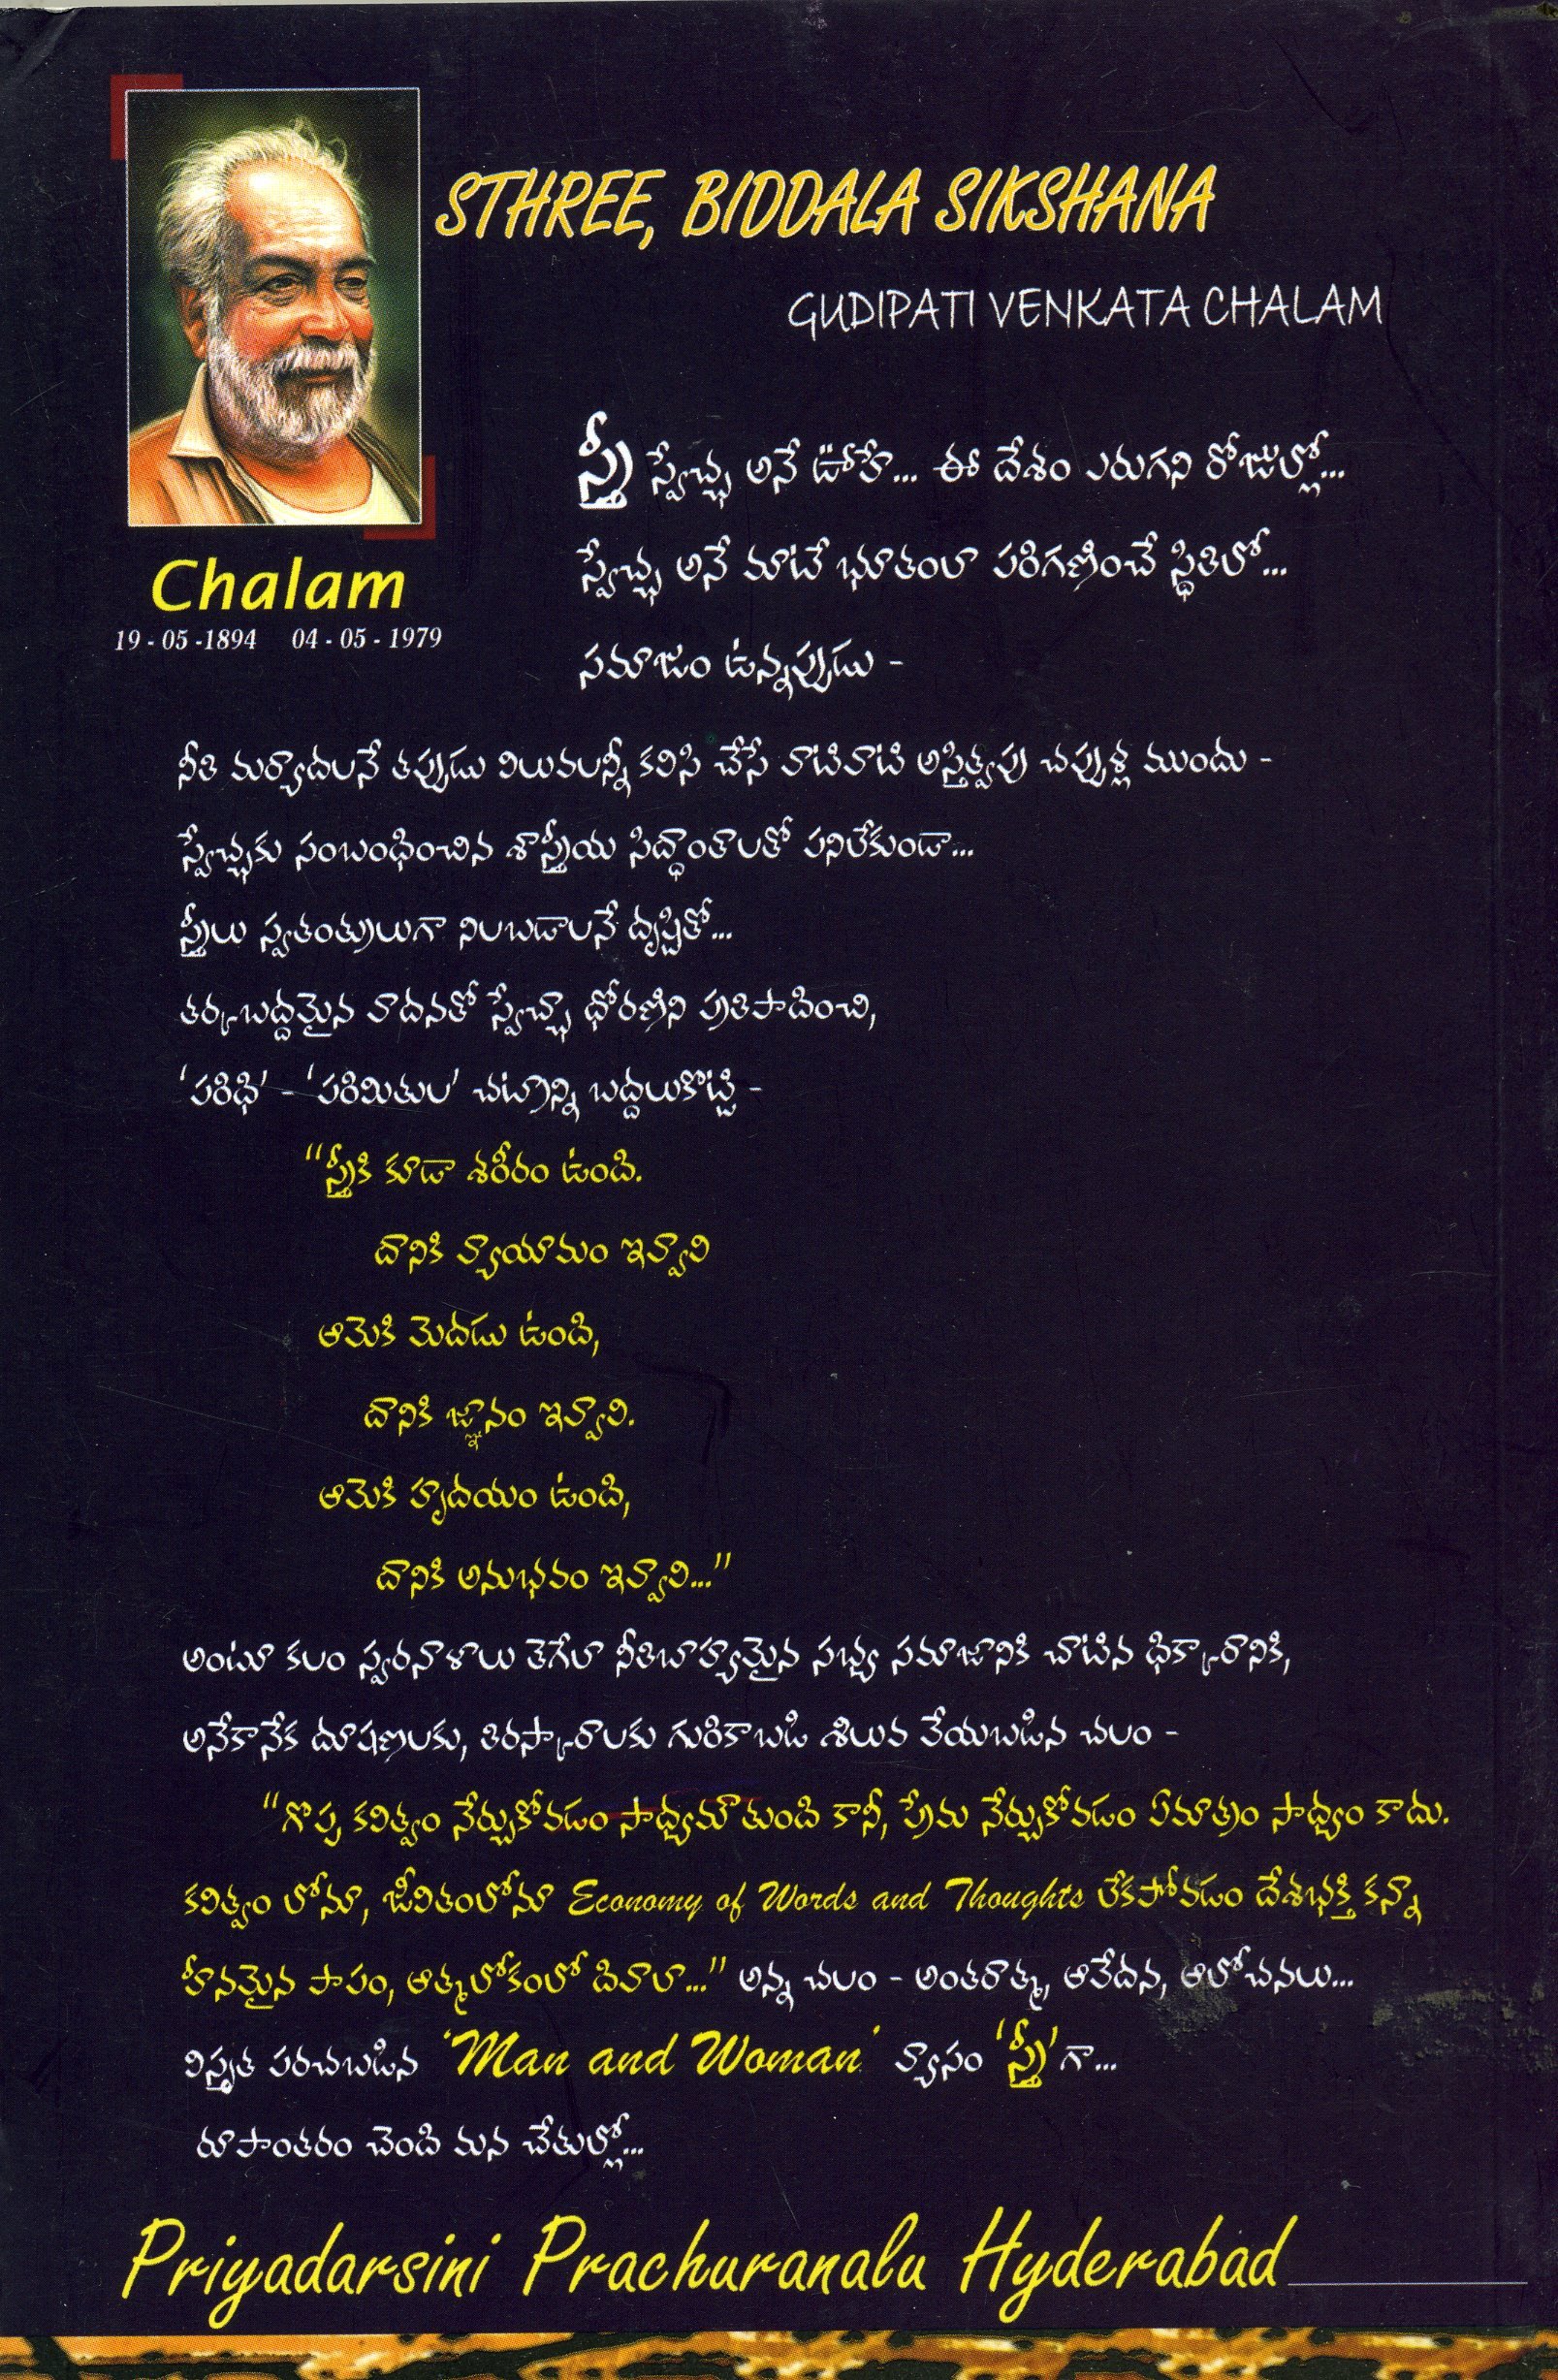 STHREE, BIDDALA SIKSHANA
GUDIPATI VENKATA CHALAM
Chalam
19 - 05 -1894 04 - 05 - 1979
స్త్రీ స్వేచ్ఛ అనే ఊహే... ఈ దేశం ఎరుగని రోజుల్లో...
స్వేచ్ఛ అనే మాటే భూతంలా పరిగణించే స్థితిలో...
సమాజం ఉన్నప్పుడు -
నీతి మర్యాదలనే తప్పుడు విలువలన్నీ కలిసి చేసే వాటివాటి అస్తిత్వపు చప్పుళ్ల ముందు -
స్వేచ్ఛకు సంబంధించిన శాస్త్రీయ సిద్ధాంతాలతో పనిలేకుండా...
స్త్రీలు స్వతంత్రులుగా నిలబడాలనే దృష్టితో...
తర్కబద్దమైన వాదనతో స్వేచ్ఛా ధోరణిని ప్రతిపాదించి,
'పరిధి' - 'పరిమితుల' చట్రాన్ని బద్దలుకొట్టి -
"స్త్రీకి కూడా శరీరం ఉంది.
దానికి వ్యాయామం ఇవ్వాలి
ఆమెకి మెదడు ఉంది,
దానికి జ్ఞానం ఇవ్వాలి.
ఆమెకి హృదయం ఉంది,
దానికి అనుభవం ఇవ్వాలి..."
అంటూ కలం స్వరనాళాలు తెగేలా నీతిబాహ్యమైన సభ్య సమాజానికి చాటిన ధిక్కారానికి,
అనేకానేక దూషణలకు, తిరస్కారాలకు గురికాబడి శిలువ వేయబడిన చలం -
"గొప్ప కవిత్వం నేర్చుకోవడం సాధ్యమౌతుంది కానీ, ప్రేమ నేర్చుకోవడం ఏమాత్రం సాధ్యం కాదు.
కవిత్వం లోనూ, జీవితంలోనూ Economy of Words and Thoughts లేకపోవడం దేశభక్తి కన్నా
హీనమైన పాపం, ఆత్మలోకంలో దివాలా..." అన్న చలం - అంతరాత్మ, ఆవేదన, ఆలోచనలు...
విస్తృత పరచబడిన 'Man and Woman' వ్యాసం 'స్త్రీ'గా...
రూపాంతరం చెంది మన చేతుల్లో...
Priyadarsini Prachuranalu Hyderabad